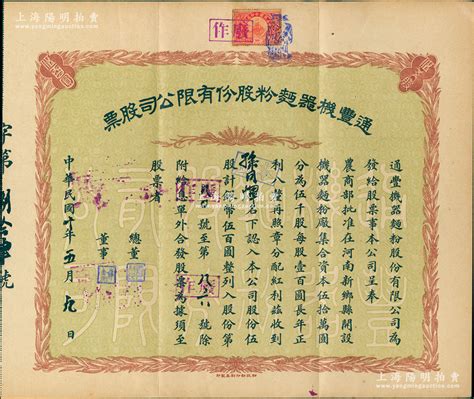 上海陽明拍賣
www.yangmingauction.com
作廢
通豐機器麵粉股份有限公司股票
通豐機器麵粉股份有限公司為
發給股票事本公司呈奉
農商部批准在河南新鄉縣開設
機器麵粉廠集合資本伍拾萬圓
分為伍千股每股壹百圓長年正
利人釐再照章分配紅利茲收到
孫 名下認入本公司股份伍
股計銀幣伍百圓整列入股份第
號至第 號除
附給息單外合發股票為據須至
股票者
總董
董事
中華民國 年五月九日
字第 號
上海陽明拍賣
www.yangmingauction.com